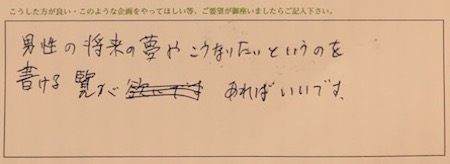 こうした方が良い・このような企画をやってほしい等、ご要望が御座いましたらご記入下さい。
男性の将来の夢や こうなりたいというのを
書ける 覧が 欲いです あればいいです。